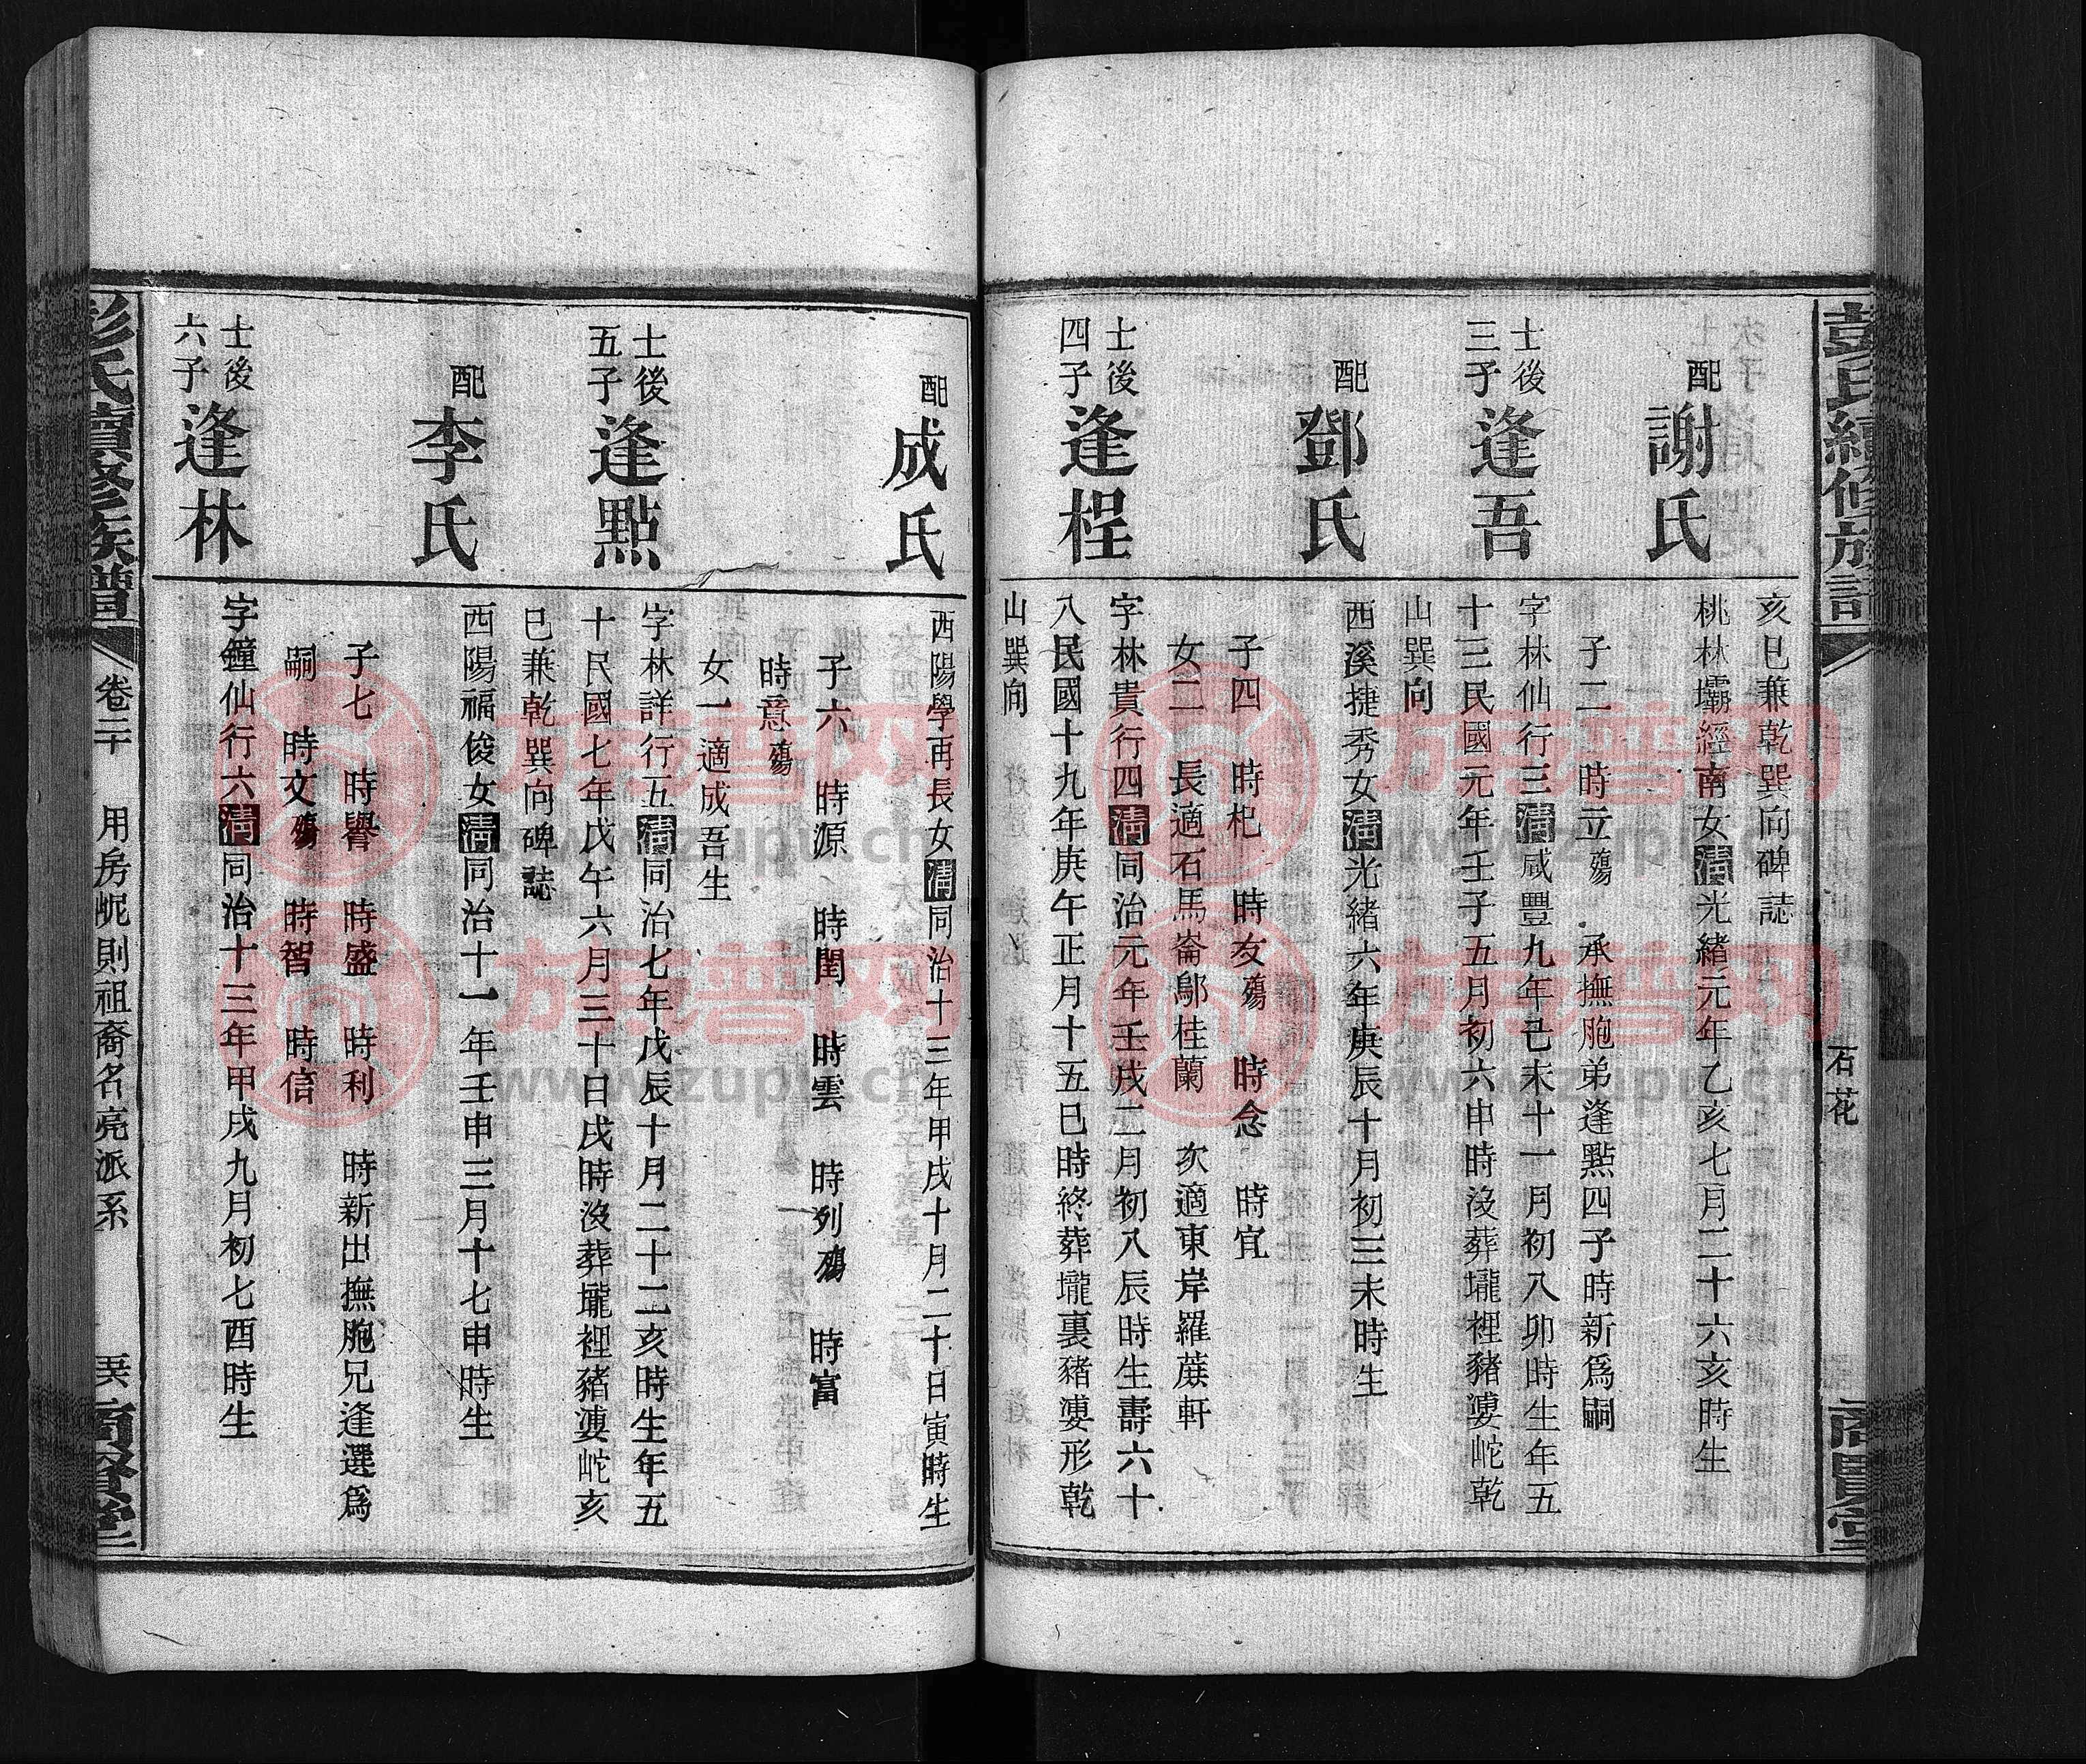 彭氏續修族譜
石花
亥巳兼乾巽向碑誌
配謝氏
桃林壩經南女清光緒元年乙亥七月二十六亥時生
子二 時立殤 承撫胞弟逢點四子時新爲嗣
士後三子逢吾
字林仙行三清咸豐九年己未十一月初八卯時生年五
十三民國元年壬子五月初六申時沒葬壠裡豬婆岮乾
山巽向
配鄧氏
西溪捷秀女清光緒六年庚辰十月初三未時生
子四 時杞 時友殤 時念 時宜
女二 長適石馬崙鄔桂蘭 次適東岸羅蔗軒
士後四子逢桯
字林貴行四清同治元年壬戌二月初八辰時生壽六十
八民國十九年庚午正月十五巳時終葬壠裏豬婆形乾
山巽向
配成氏
西陽學再長女清同治十三年甲戌十月二十日寅時生
子六 時源 時閏 時雲 時列殤 時富
時意殤
女一適成吾生
士後五子逢點
字林詳行五清同治七年戊辰十月二十二亥時生年五
十民國七年戊午六月三十日戌時沒葬壠裡豬婆岮亥
巳兼乾巽向碑誌
配李氏
西陽福俊女清同治十一年壬申三月十七申時生
子七 時譽 時盛 時利 時新出撫胞兄逢選爲
嗣 時文殤 時智 時信
士後六子逢林
字鐘仙行六清同治十三年甲戌九月初七酉時生
彭氏續修族譜 卷二十 用房怩則祖裔名亮派系
族譜网
www.zupu.cn
族譜网
www.zupu.cn
族譜网
www.zupu.cn
族譜网
www.zupu.cn